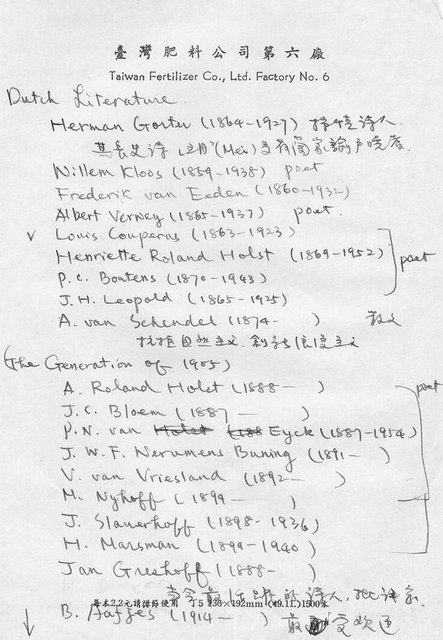 臺灣肥料公司第六廠
Taiwan Fertilizer Co., Ltd. Factory No. 6
Dutch Literature.
Herman Gorter (1864-1927) 抒情诗人.
其長史诗《五月》(Mei) 受有
Willem Kloos (1859-1938) poet
Frederik van Eeden (1860-1932)
Albert Verwey (1865-1937) poet.
v Louis Couperus (1863-1923)
Henriette Roland Holst (1869-1952) poet
P.C. Boutens (1870-1943)
J.H. Leopold (1865-1925)
A. van Schendel (1874- ) 散文
抗拒自然主义. 創新浪漫主义
(The Generation of 1905)
A. Roland Holst (1888- ) poet
J.C. Bloem (1887- )
P.N. van Eyck (1887-1954)
J.W.F. Werumens Buning (1891- )
V. van Vriesland (1892- )
M. Nyhoff (1894- )
J. Slauerhoff (1898-1936)
H. Marsman (1899-1940)
Jan Greshoff (1888- )
当今最 的诗人, 批评家.
每本2.2元請節使用 J5 230×192mm (49.11.)1500本
B. Aafjes (1914- ) 最受欢迎